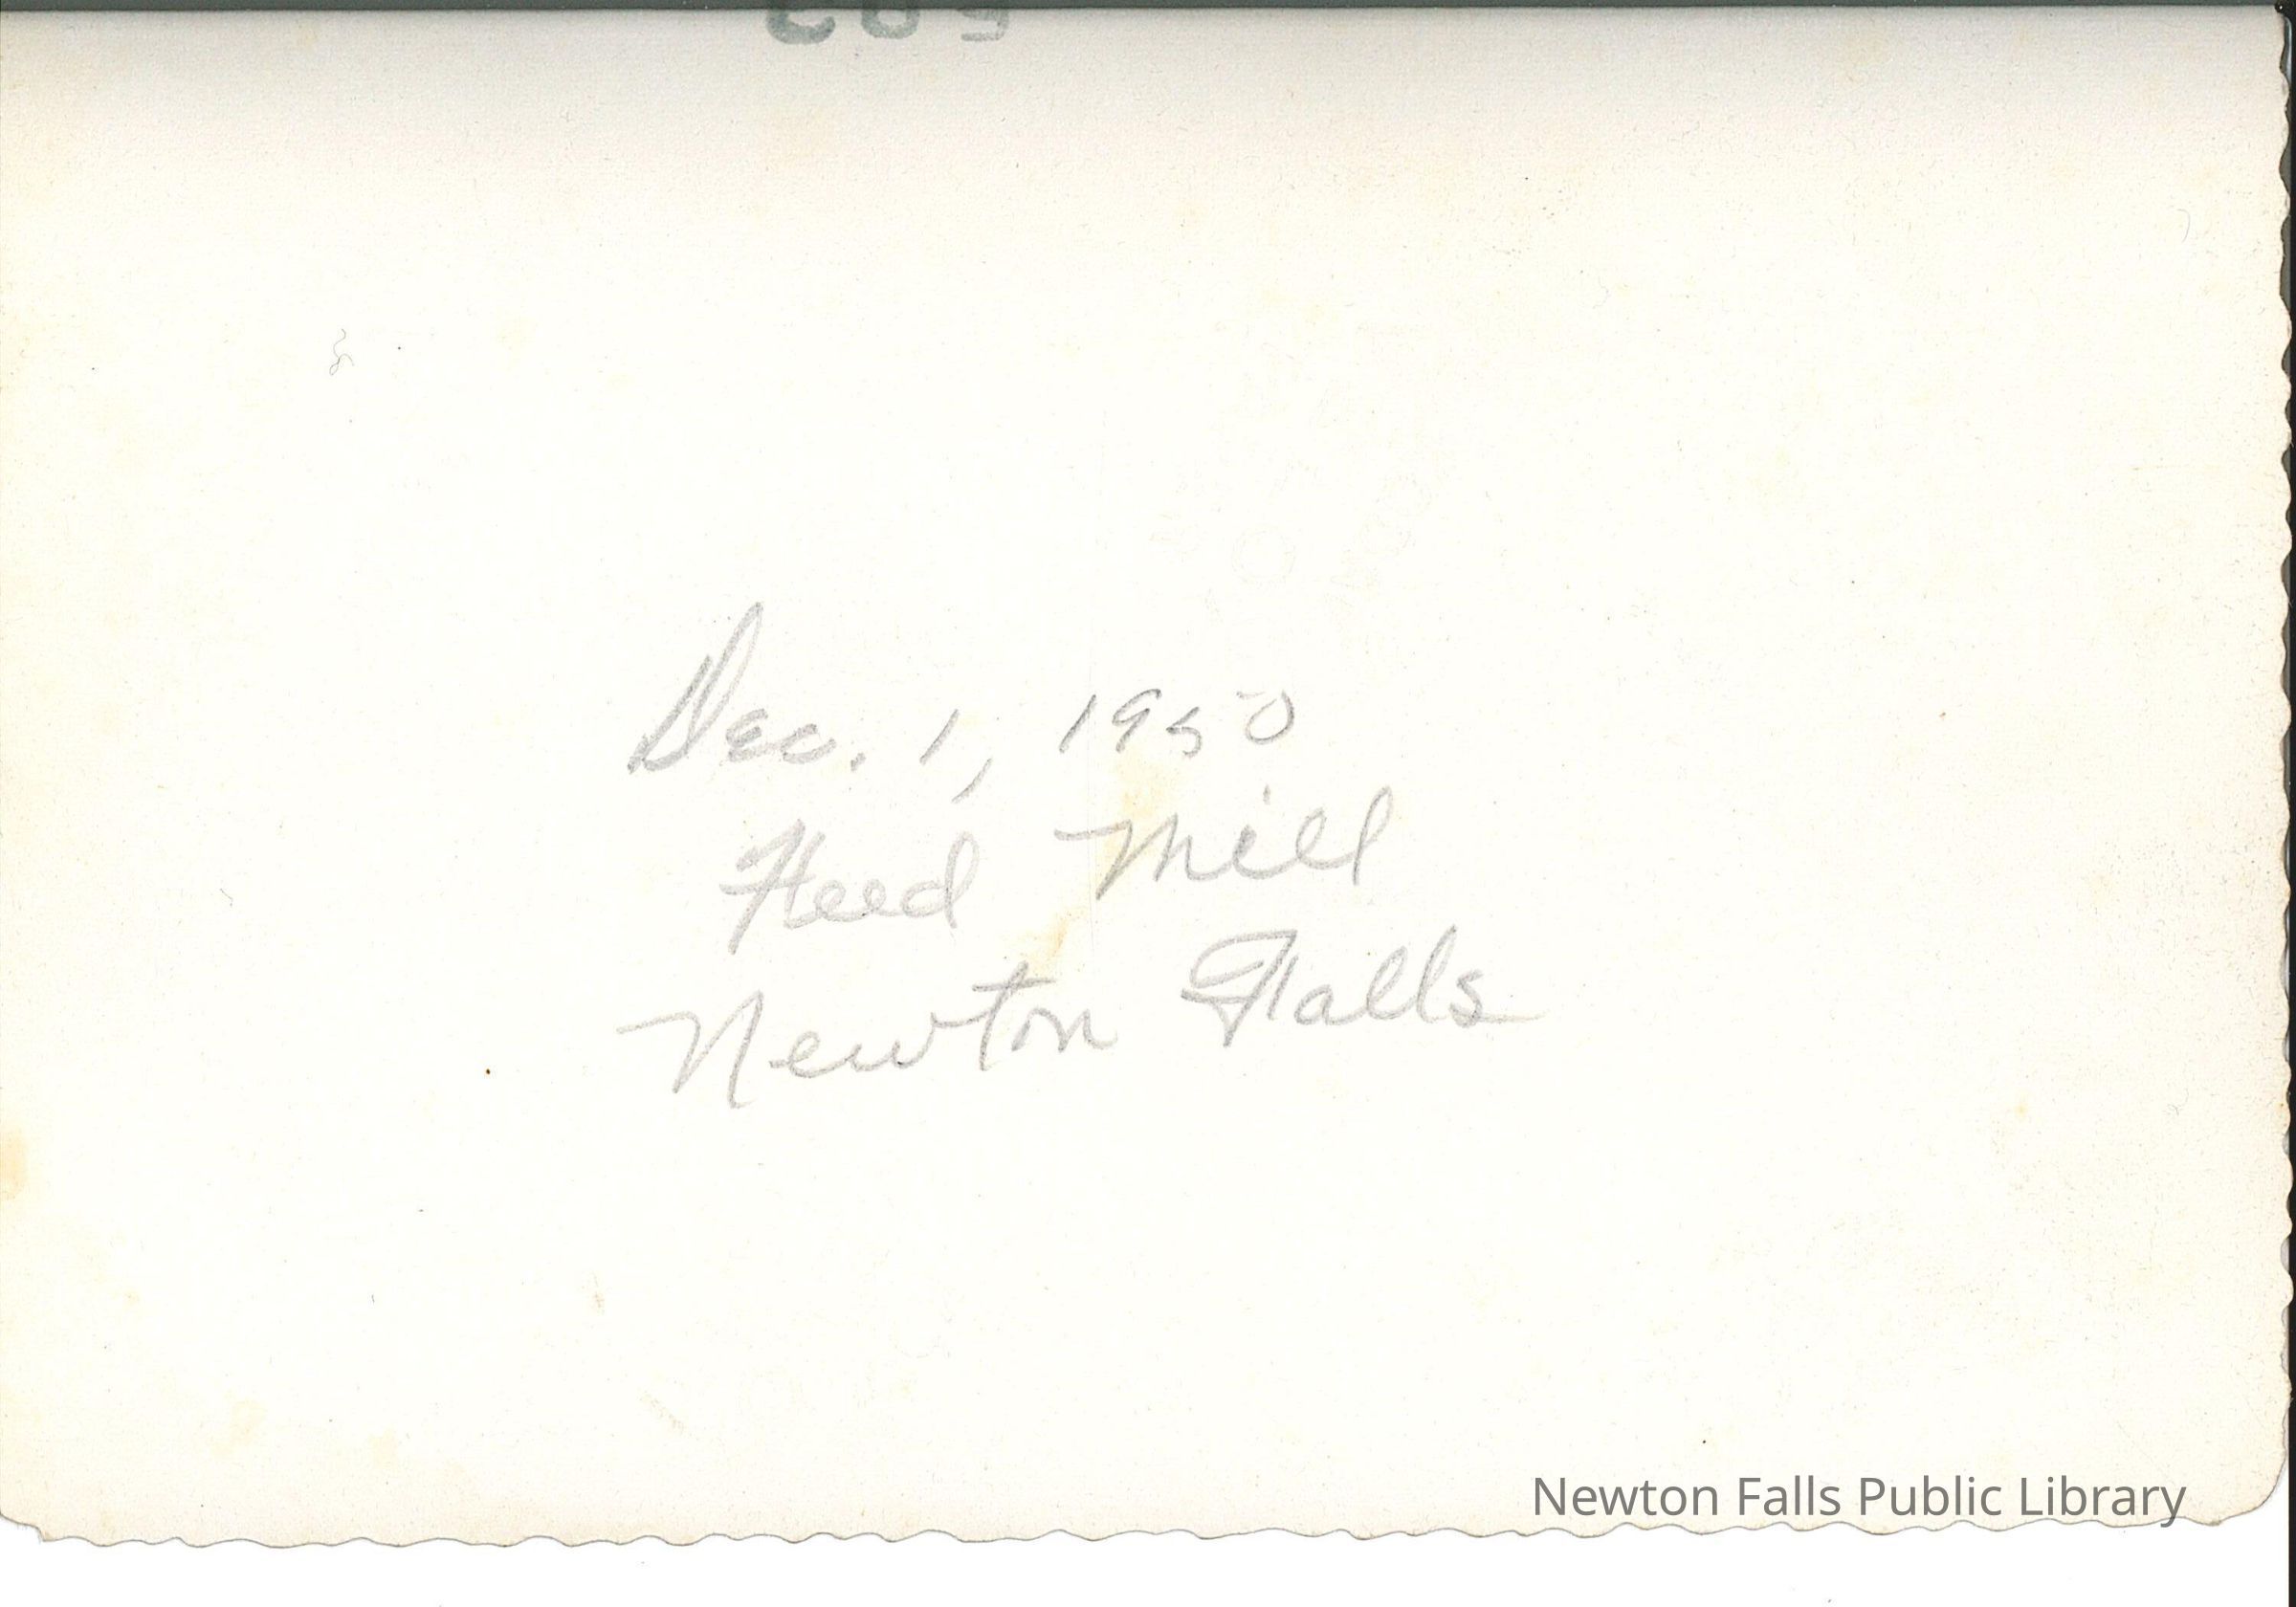 Dec. 1, 1950
Feed Mill
Newton Falls
Newton Falls Public Library